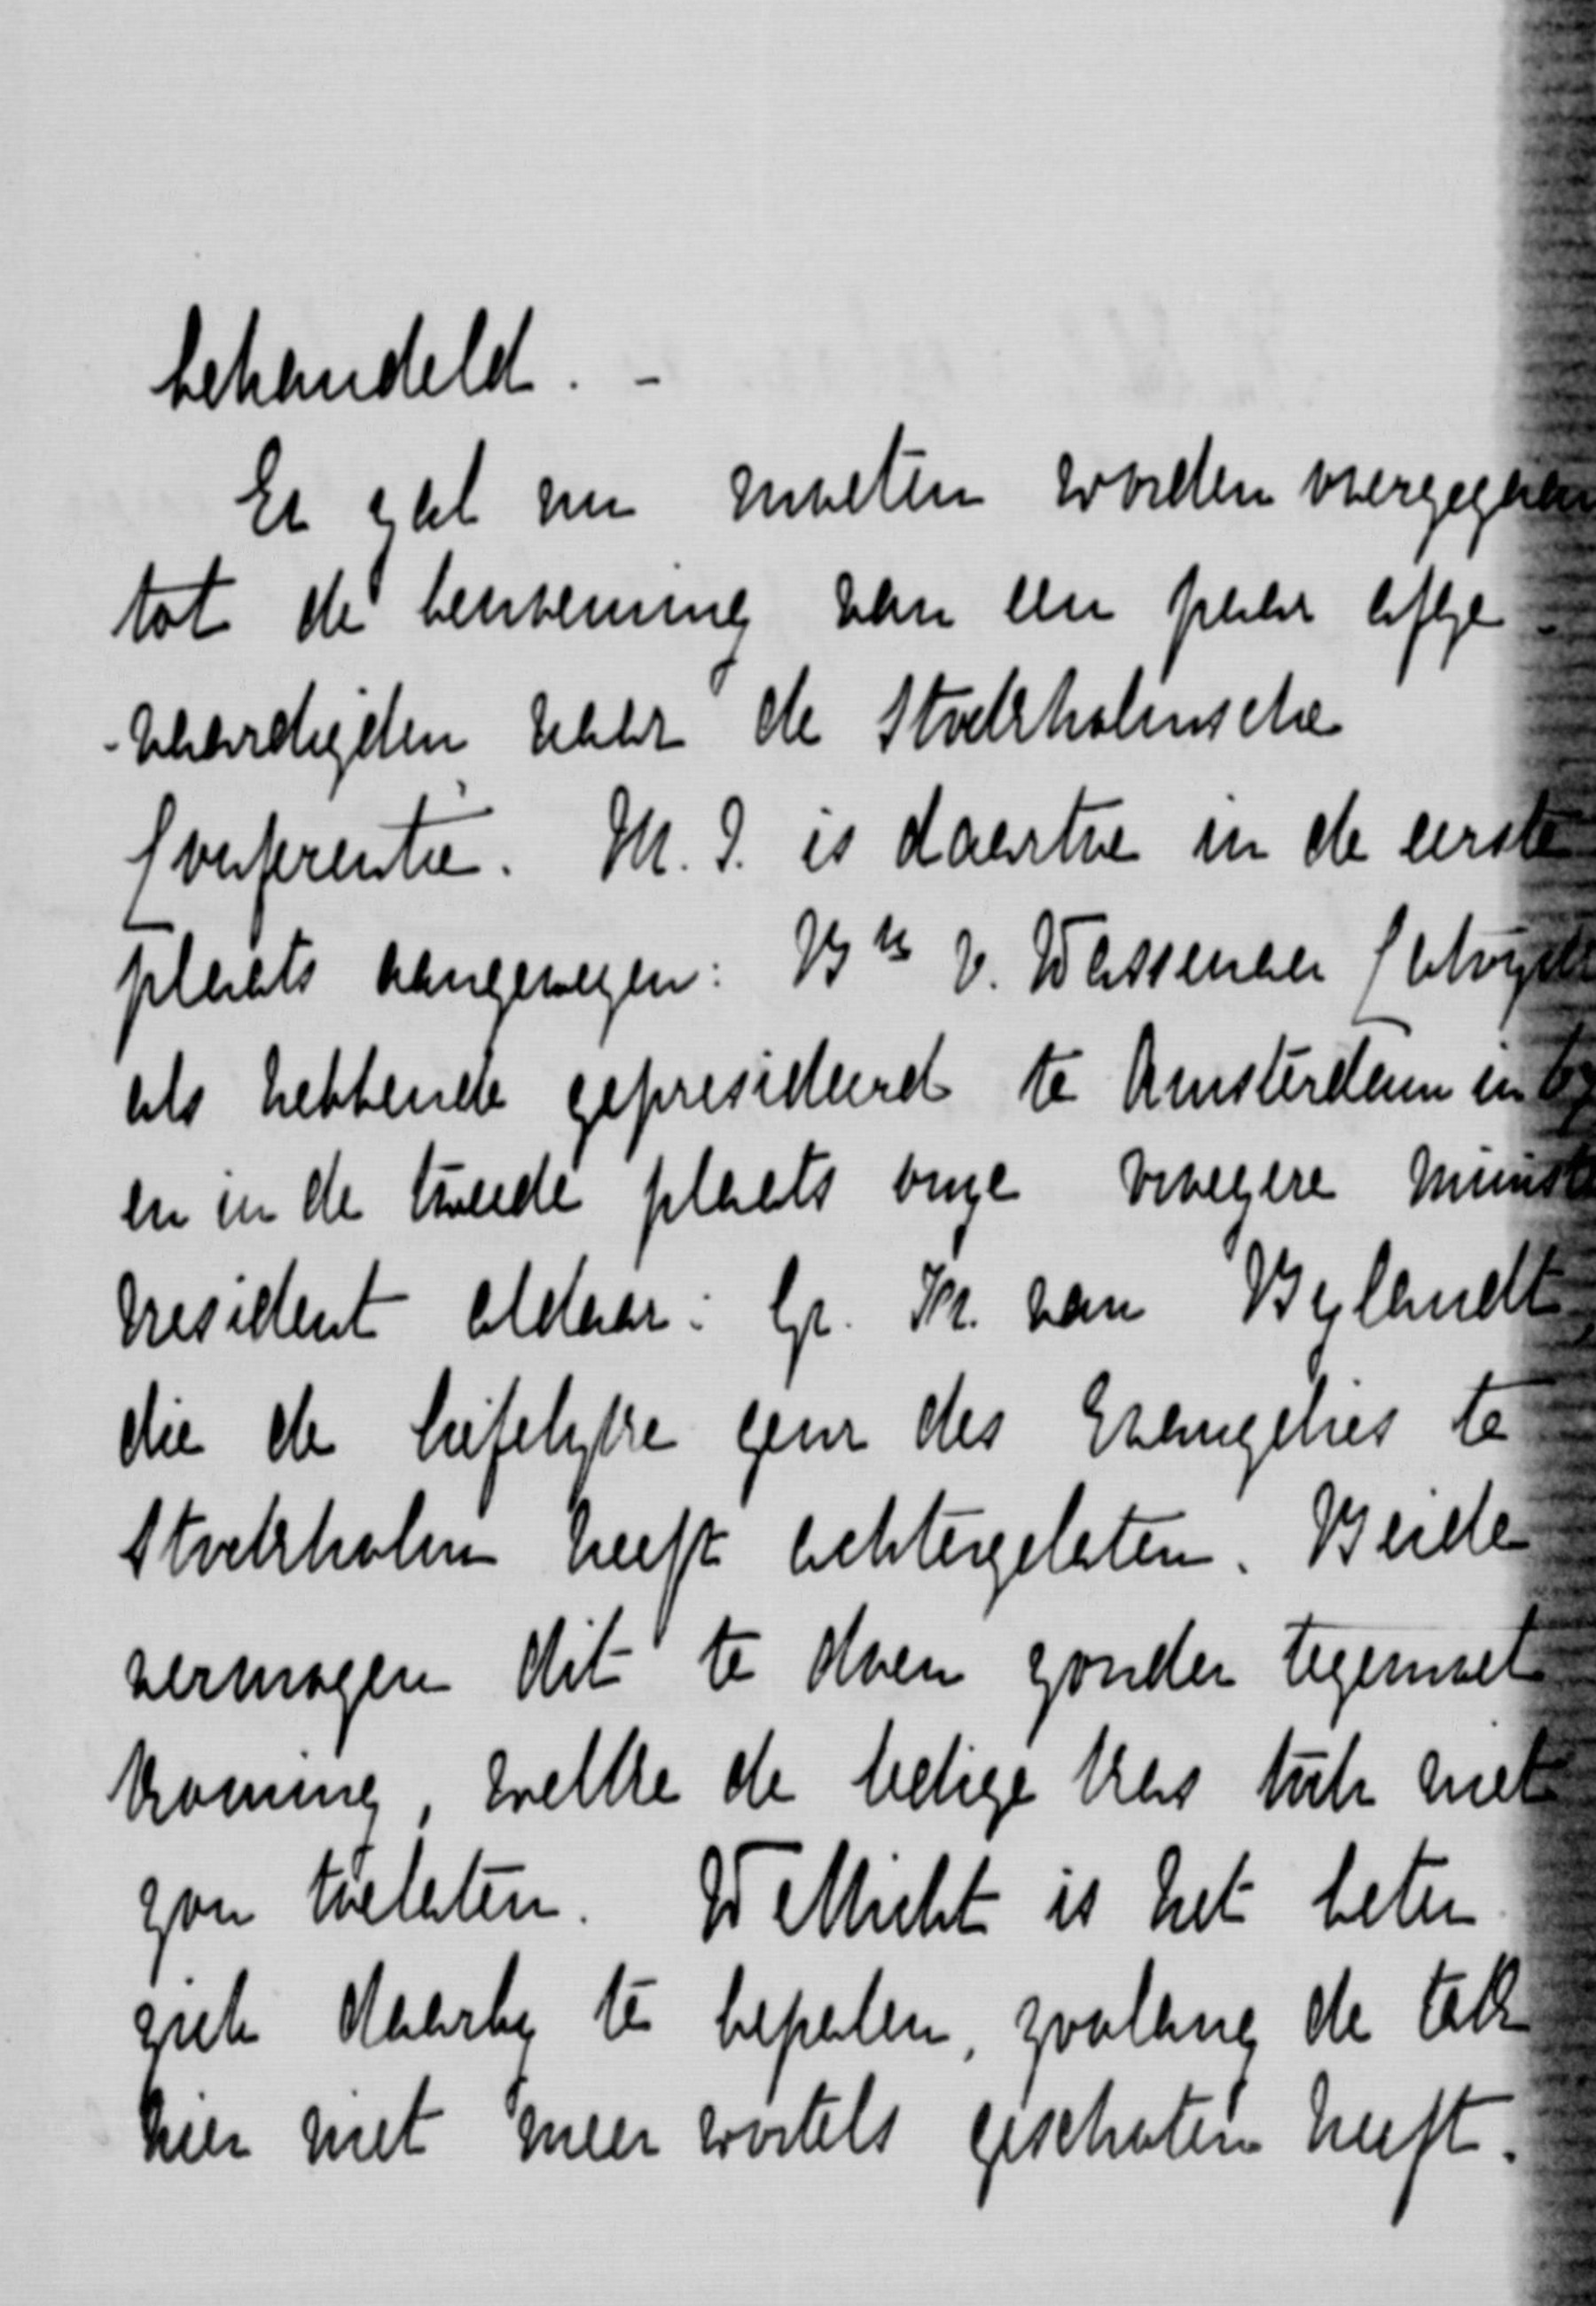 behandeld. -
Er zal nu moeten worden overgegaan
tot de benoeming van een paar afge-
-vaardigden naar de Stockholmsche
Conferentie. M. I. is daartoe in de eerste
plaats aangewezen: Bn v. Wassenaer Catwyck
als hebbende gepresideerd te Amsterdam in
en in de tweede plaats onze vroegere minist
resident aldaar: Gr. K. van Bylandt
die de liefelyke geur des Evangelies te
Stockholm heeft achtergelaten. Beide
vermogen dit te doen zonder tegemoet
koming, welke de ledige kas toch niet
zou toelaten. Wellicht is het beter
zich daarby te bepalen, zoolang de tak
hier niet meer wortels geschoten heeft.